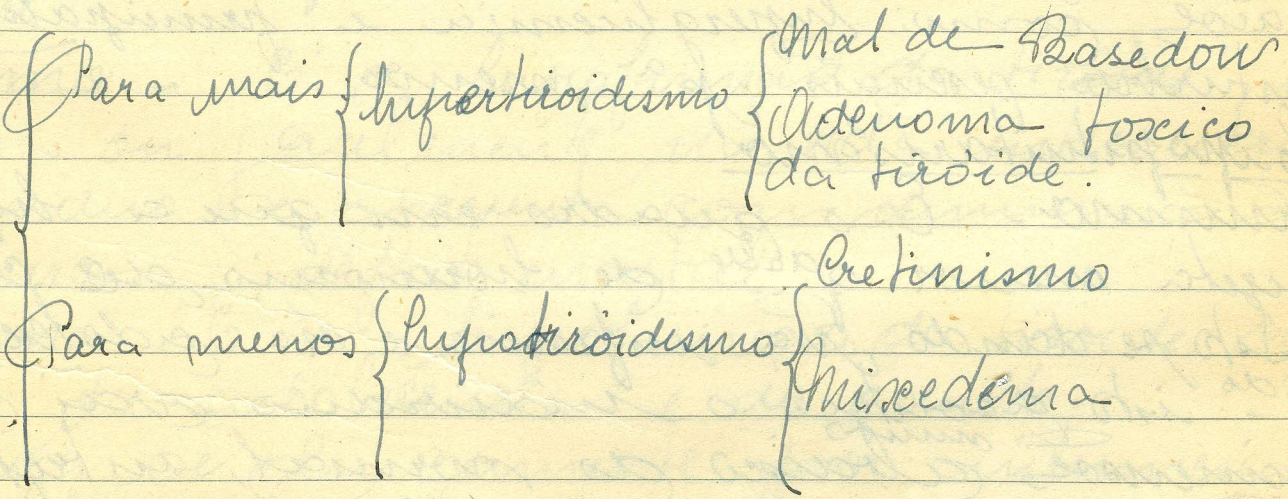 Para mais hipertiroidismo Mal de Basedow
Adenoma toxico
da tiróide.
Para menos hipotiróidismo Cretinismo
Mixedema